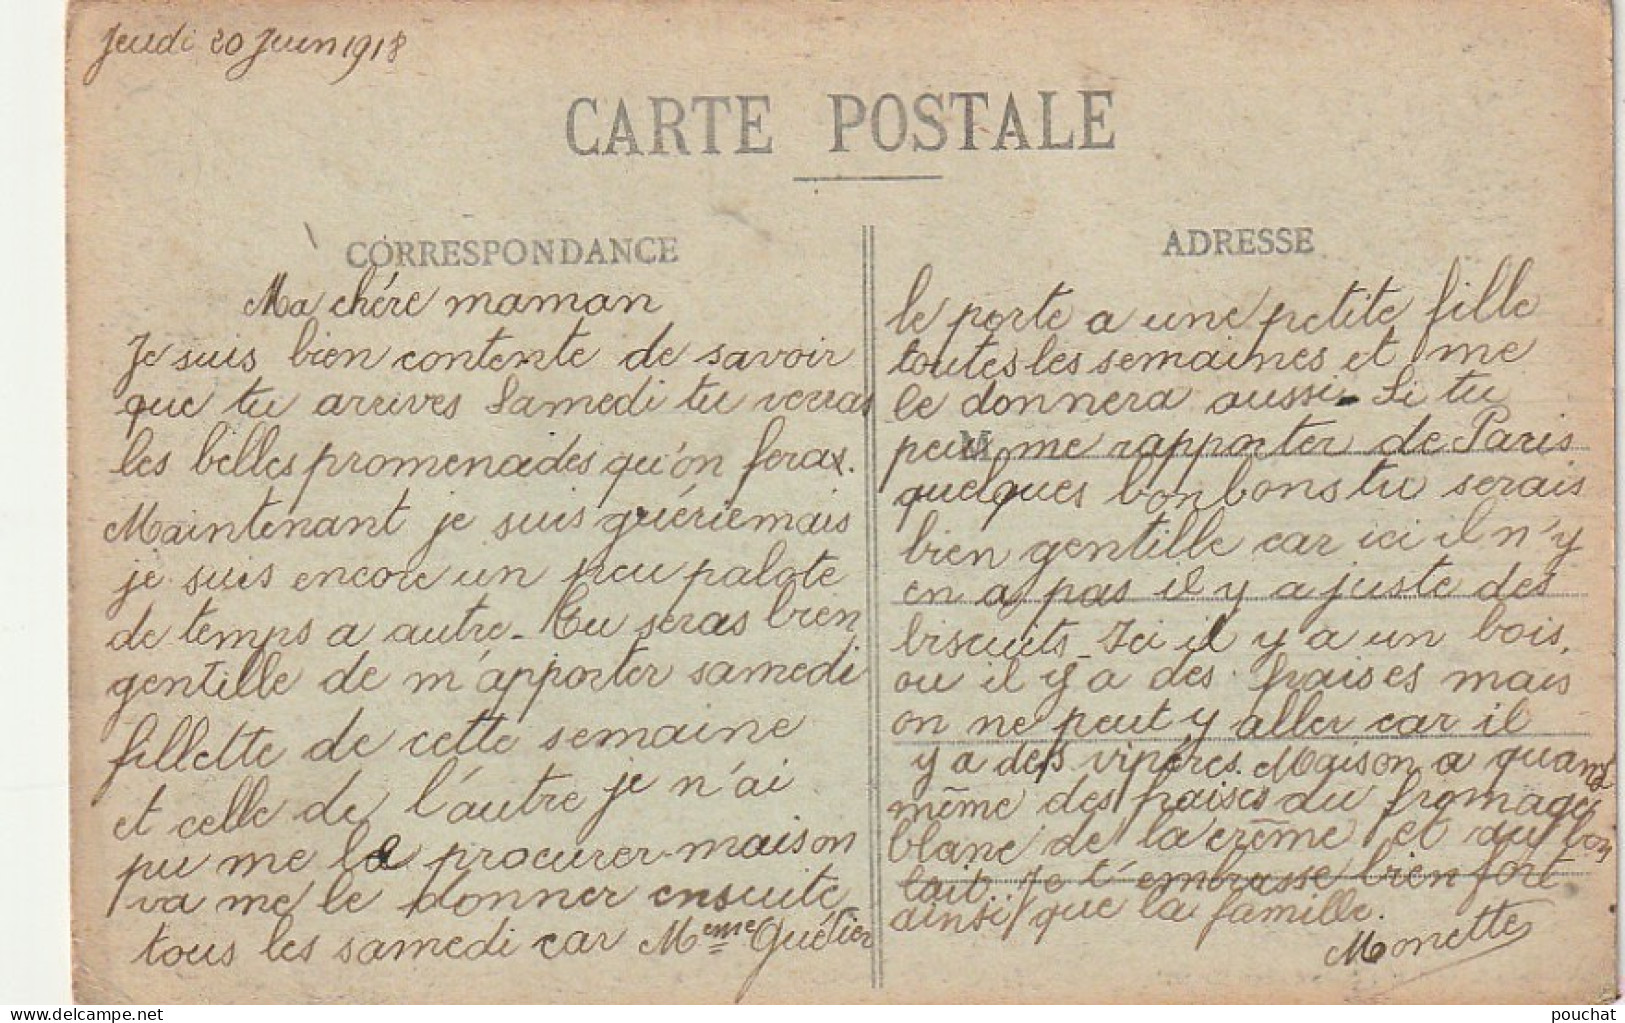 Jeudi 20 Juin 1918
CARTE POSTALE
CORRESPONDANCE
Ma chére maman
Je suis bien contente de savoir
que tu arrives Samedi tu verras
les belles promenades qu'on feras.
Maintenant je suis guérie mais
je suis encore un peu palote
de temps a autre. Tu seras bien
gentille de m'apporter samedi
fillette de cette semaine
et celle de l'autre je n'ai
pu me le procurer maison
va me le donner ensuite
tous les samedi car Meme Guétier
ADRESSE
le porte a une petite fille
toutes les semaines et me
le donnera aussi. Si tu
M
peux me rapporter de Paris
quelques bonbons tu serais
bien gentille car ici il n'y
en a pas il y a juste des
biscuits. Ici il y a un bois,
ou il y a des fraises mais
on ne peut y aller car il
y a des vipéres. Maison a quand
même des fraises du fromage
blanc de la crême et du bon
lait. Je t'embrasse bien fort
ainsi que la famille.
Monette
delcampe.net
pouchat